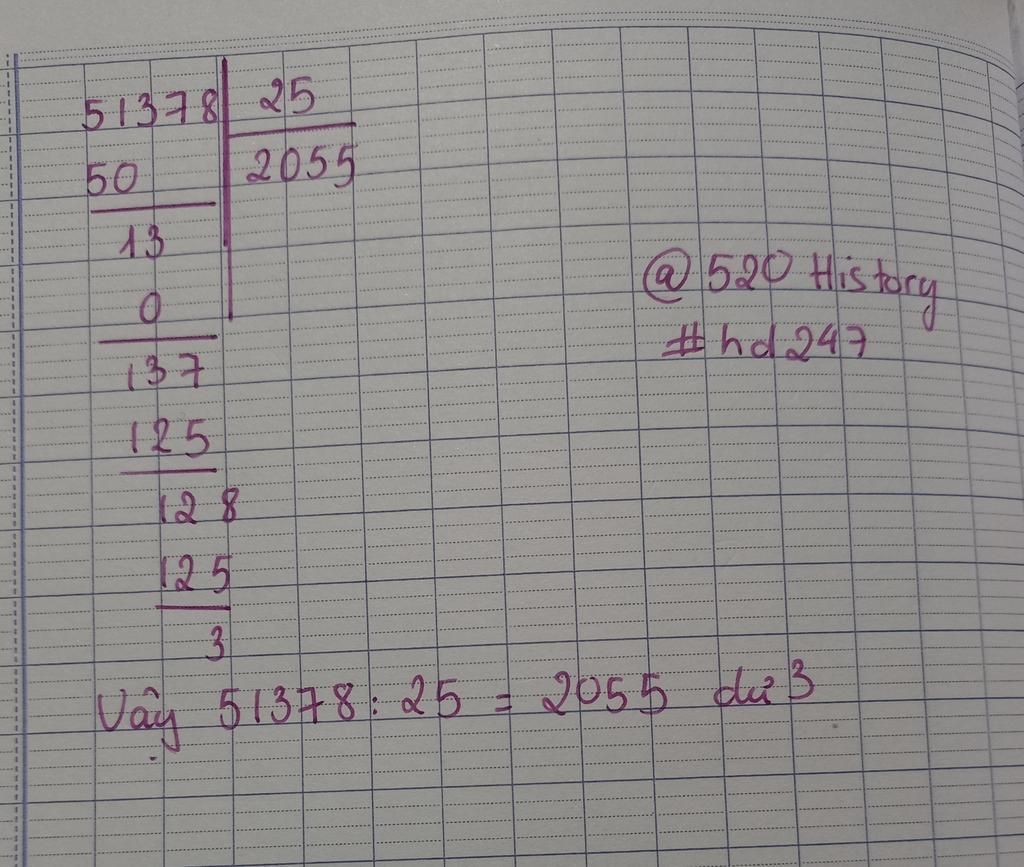 51378 25
50 2055
13
@ 520 History
0
# hd 247
137
125
128
125
3
Vậy 51378 : 25 = 2055 dư 3